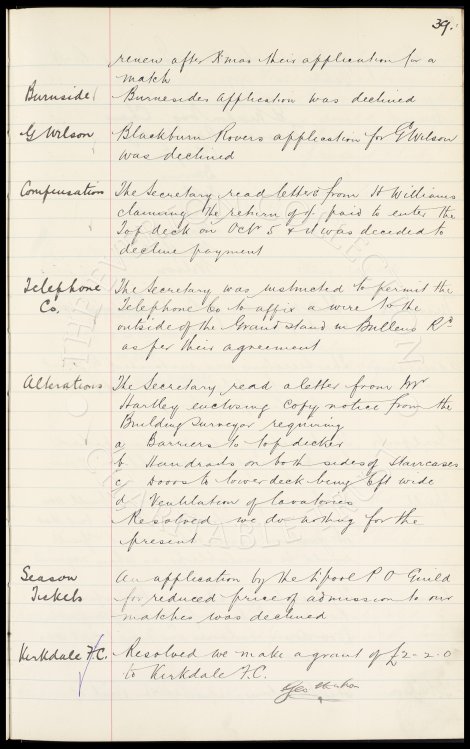 39.
renew after Xmas their application for a
match
Burnside Burnesides application was declined
G Wilson Blackburn Rovers application for G Wilson
was declined
Compensation The Secretary read letters from H Williams
claiming the return of paid to enter the
Top deck on Oct 5 & it was decided to
decline payment
Telephone The Secretary was instructed to permit the
Co. Telephone Co to affix a wire to the
outside of the Grand Stand in Bullens Rd
as per their agreement
Alterations The Secretary read a letter from Mr
Hartley enclosing copy notice from the
Building Surveyor requiring
a Barriers to top decker
b Handrails on both sides of staircases
c Doors to lower deck being 6ft wide
d Ventilation of lavatories
Resolved we do nothing for the
present
Season An application by the Lpool P O Guild
Tickets for reduced price of admission to our
matches was declined
Kirkdale F.C. Resolved we make a grant of £2-2-0
to Kirkdale F.C.
Geo